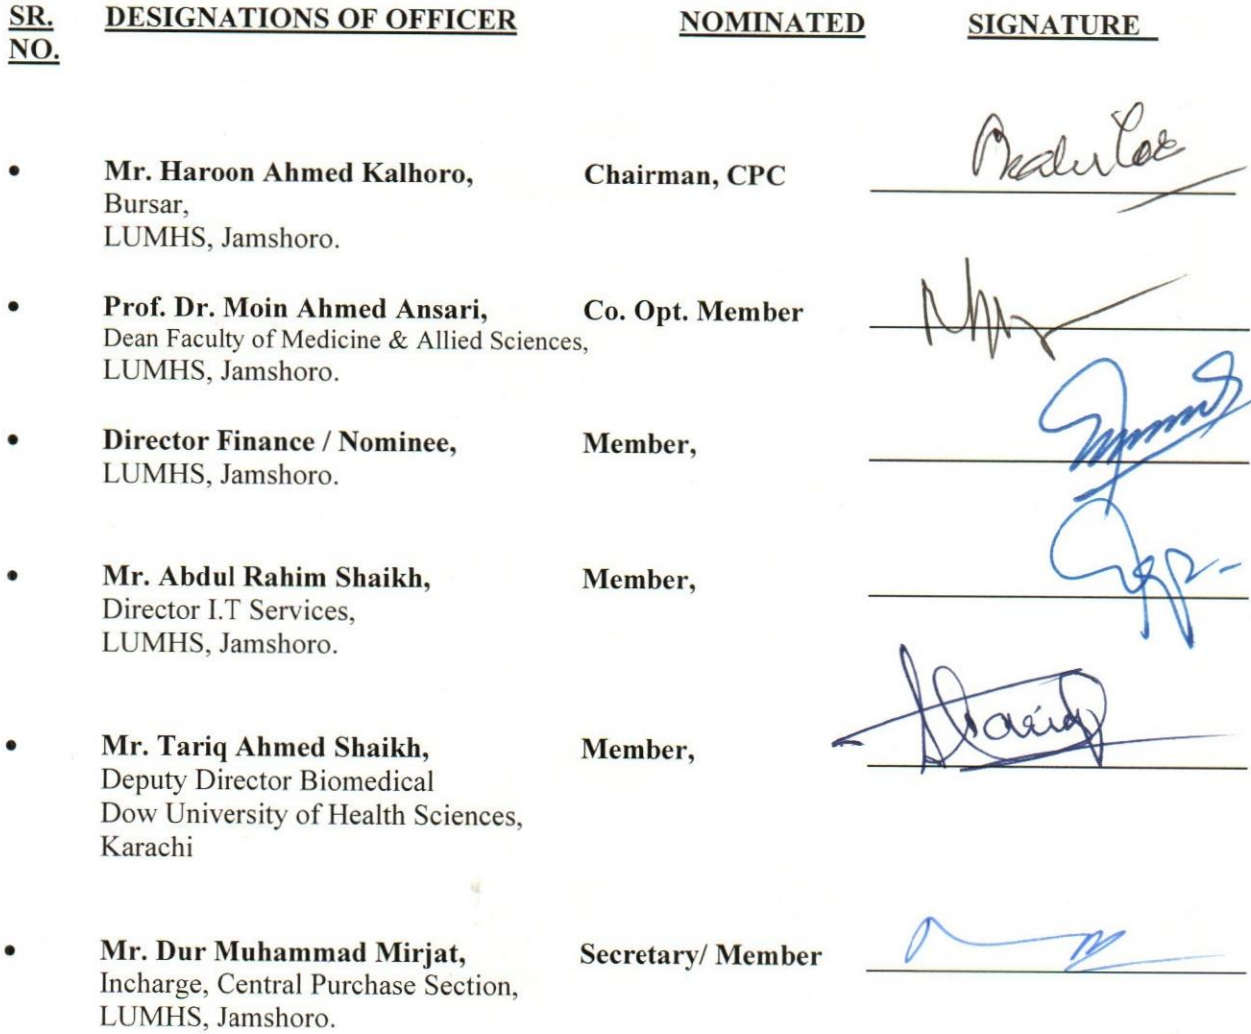 SR. DESIGNATIONS OF OFFICER NOMINATED SIGNATURE
NO.
• Mr. Haroon Ahmed Kalhoro, Chairman, CPC
Bursar,
LUMHS, Jamshoro.
• Prof. Dr. Moin Ahmed Ansari, Co. Opt. Member
Dean Faculty of Medicine & Allied Sciences,
LUMHS, Jamshoro.
• Director Finance / Nominee, Member,
LUMHS, Jamshoro.
• Mr. Abdul Rahim Shaikh, Member,
Director I.T Services,
LUMHS, Jamshoro.
• Mr. Tariq Ahmed Shaikh, Member,
Deputy Director Biomedical
Dow University of Health Sciences,
Karachi
• Mr. Dur Muhammad Mirjat, Secretary/ Member
Incharge, Central Purchase Section,
LUMHS, Jamshoro.